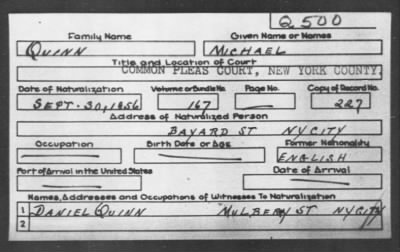 Q 500
Family Name Given Name or Names
QUINN MICHAEL
Title and Location of Court
COMMON PLEAS COURT, NEW YORK COUNTY.
Date of Naturalization Volume or Bundle No. Page No. Copy of Record No.
SEPT. 30, 1856 167 — 227
Address of Naturalized Person
BAYARD ST NYCITY
Occupation Birth Date or Age Former Nationality
— — ENGLISH
Port of Arrival in the United States Date of Arrival
— —
Names, Addresses and Occupations of Witnesses To Naturalization
1 DANIEL QUINN MULBERY ST NYCITY
2